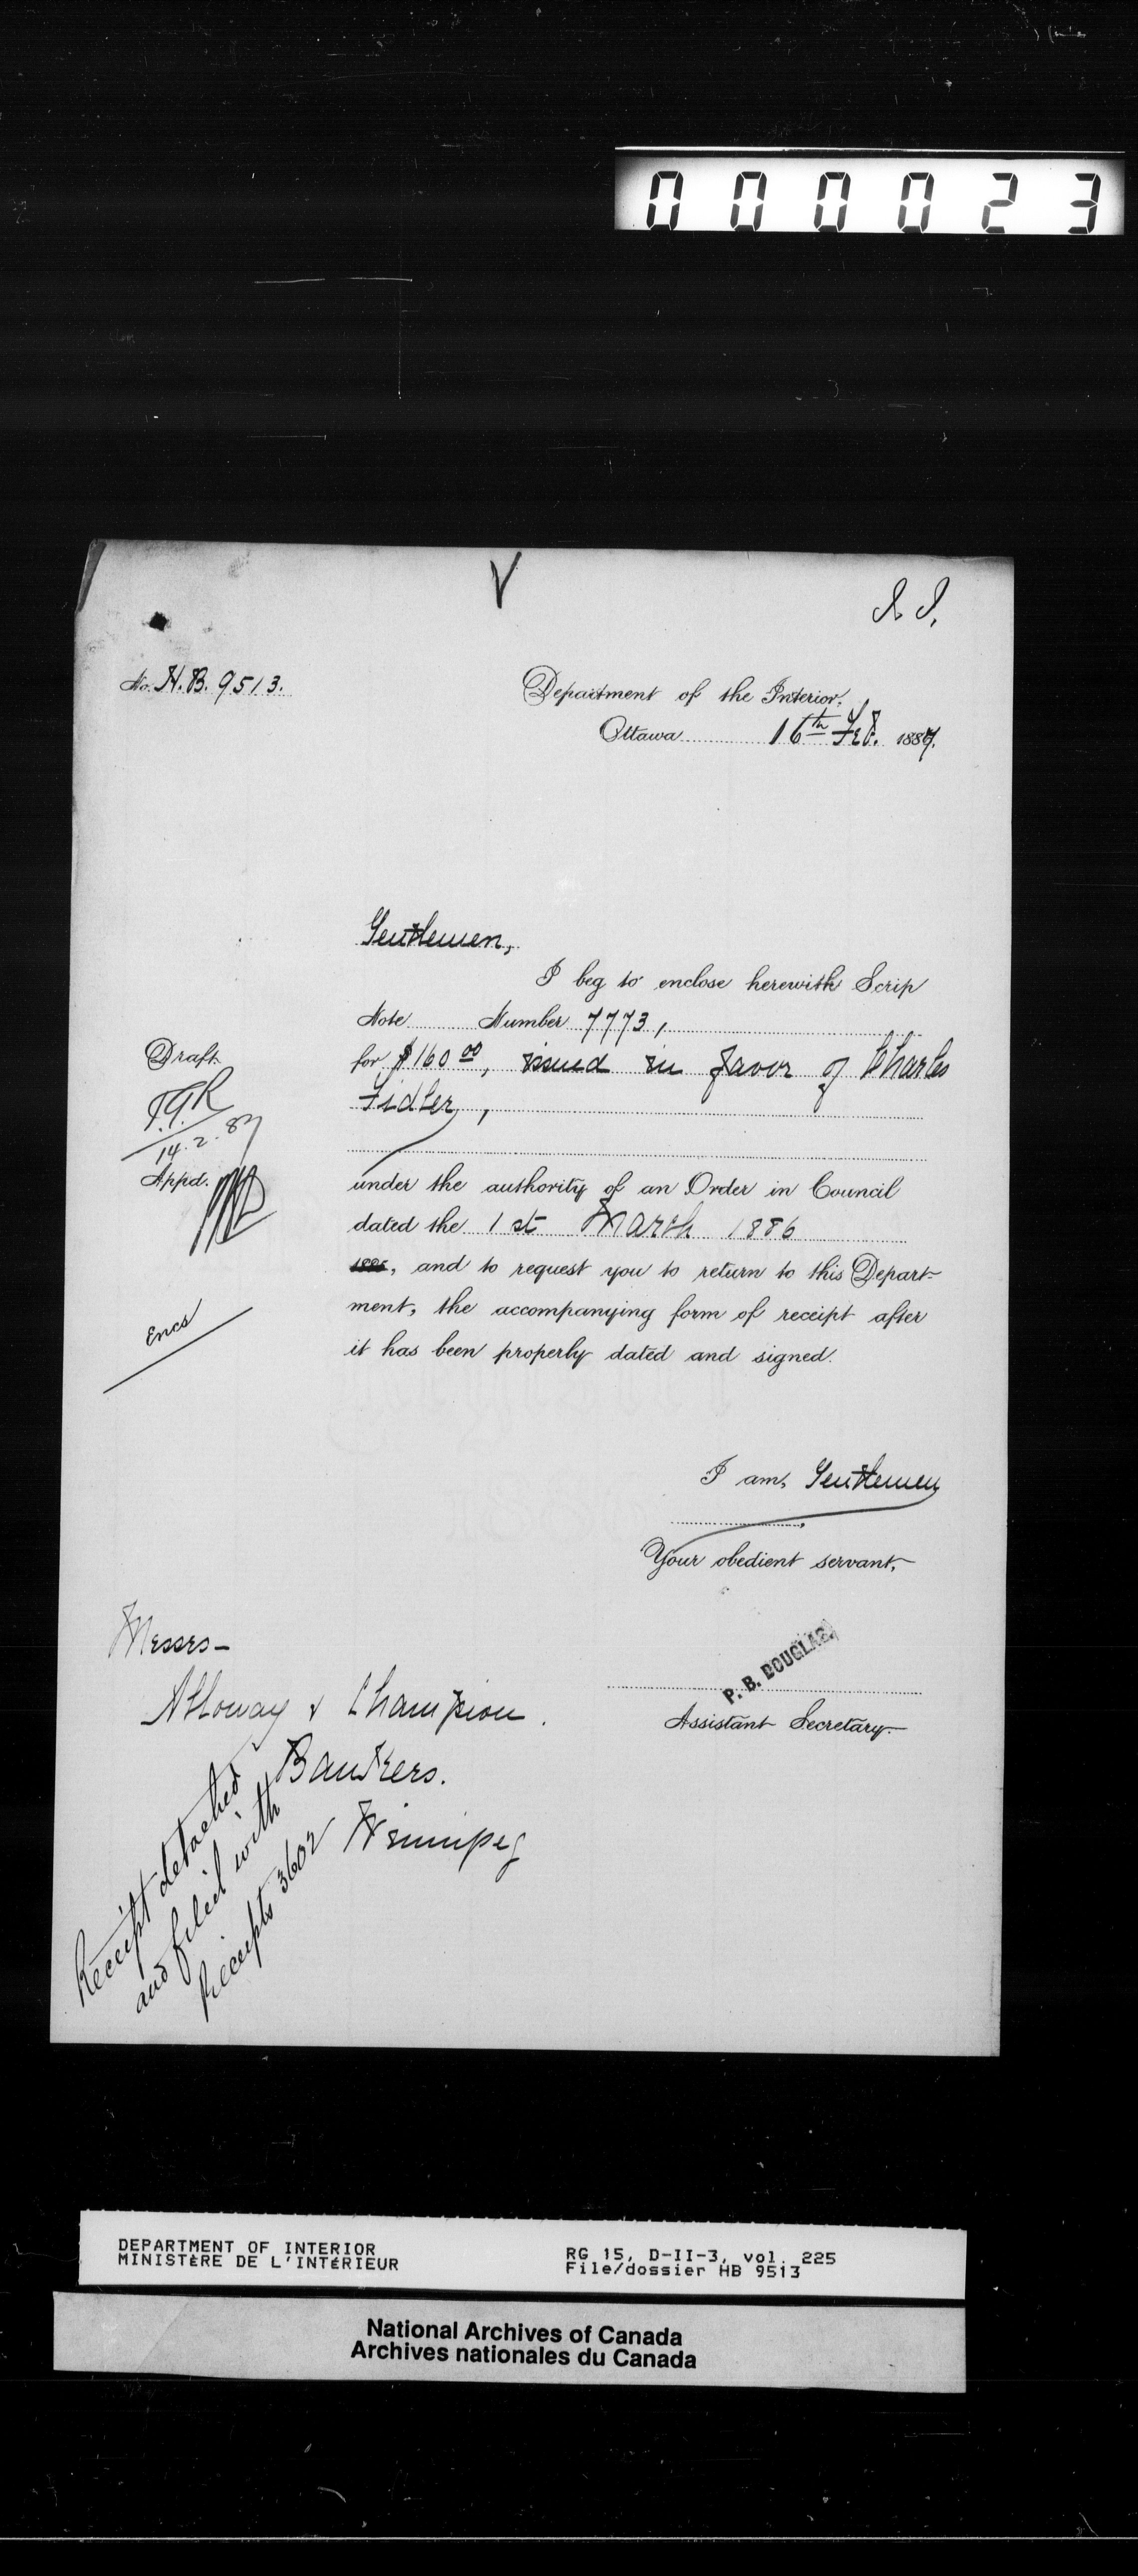 000023
No. H.B. 9513.
Department of the Interior,
Ottawa 16th Feb. 1887.
Gentlemen,
I beg to enclose herewith Scrip
Note Number 7773,
for $160 00, issued in favor of Charles
Fidler,
under the authority of an Order in Council
dated the 1st March 1886
1885, and to request you to return to this Depart-
ment, the accompanying form of receipt after
it has been properly dated and signed.
Draft
14.2.87
Appd.
Encs
I am, Gentlemen
Your obedient servant,
P. B. DOUGLAS.
Assistant Secretary.
Messrs-
Alloway & Champion.
Bankers.
Winnipeg
Receipt detached
and filed with
Receipts 3602
DEPARTMENT OF INTERIOR
MINISTÈRE DE L'INTÉRIEUR
RG 15, D-II-3, vol. 225
File/dossier HB 9513
National Archives of Canada
Archives nationales du Canada